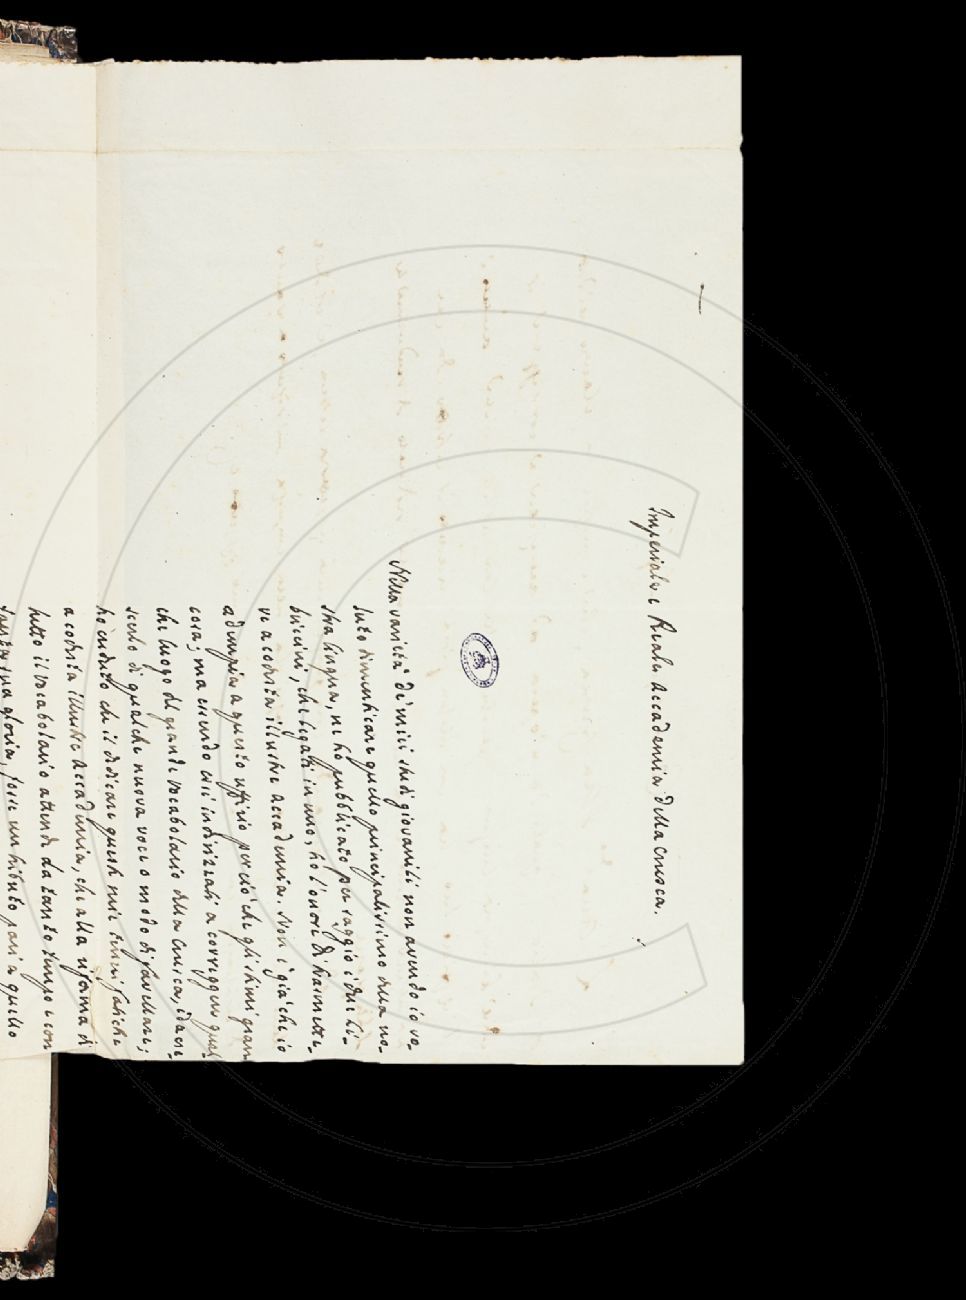 Imperiale e Reale Accademia della Crusca.
Nella varietà de' miei studi giovanili non avendo io vo-
luto dimenticare quello principalissimo della no-
stra lingua, ne ho pubblicato per saggio i due li-
briccini, che legati in uno, ho l'onore di trasmette-
re a codesta illustre Accademia. Non è già che io
adempia a questo uffizio perciò che gli stimi gran
cosa; ma essendo essi indirizzati a correggere qual-
che luogo del grande Vocabolario della Crusca, ed a cre-
scerlo di qualche nuova voce o modo di favellare;
ho creduto che il dedicare queste mie tenui fatiche
a codesta illustre Accademia, che alla riforma di
tutto il Vocabolario attende da tanto tempo e con
tanta sua gloria, fosse un tributo pari a quello